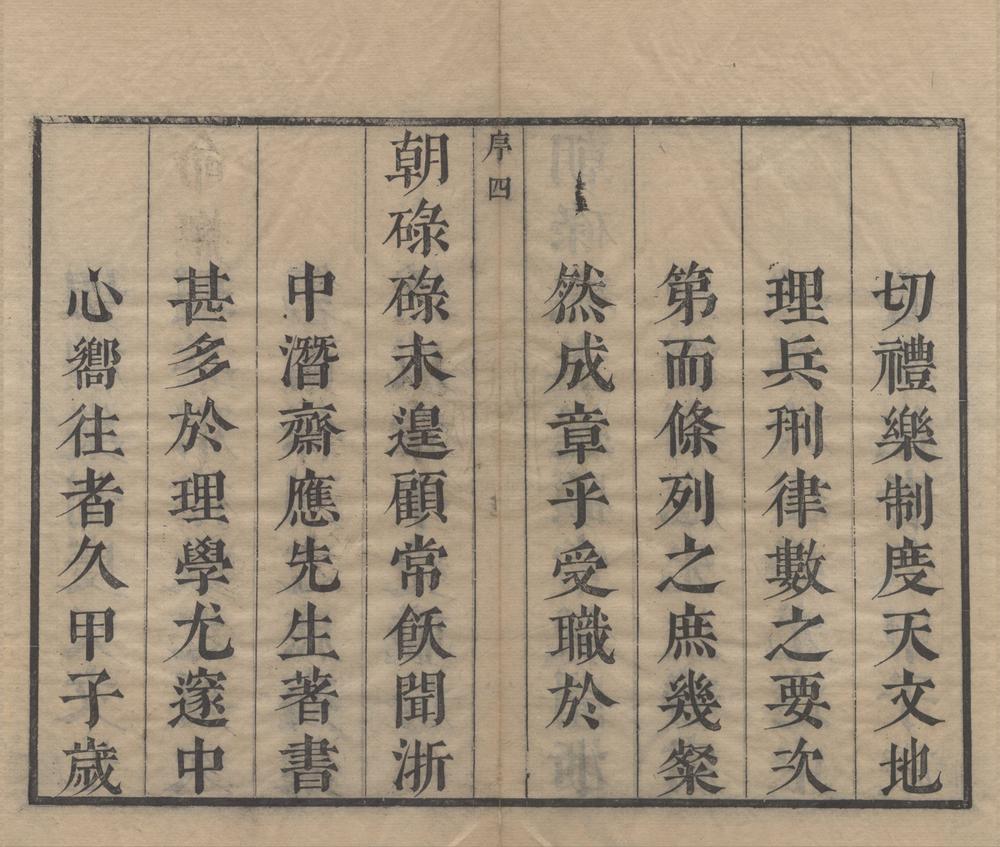 切禮樂制度天文地
理兵刑律數之要次
第而條列之庶幾粲
然成章乎受職於
序四
朝碌碌未遑顧常飫聞浙
中潛齋應先生著書
甚多於理學尤邃中
心嚮往者久甲子歲